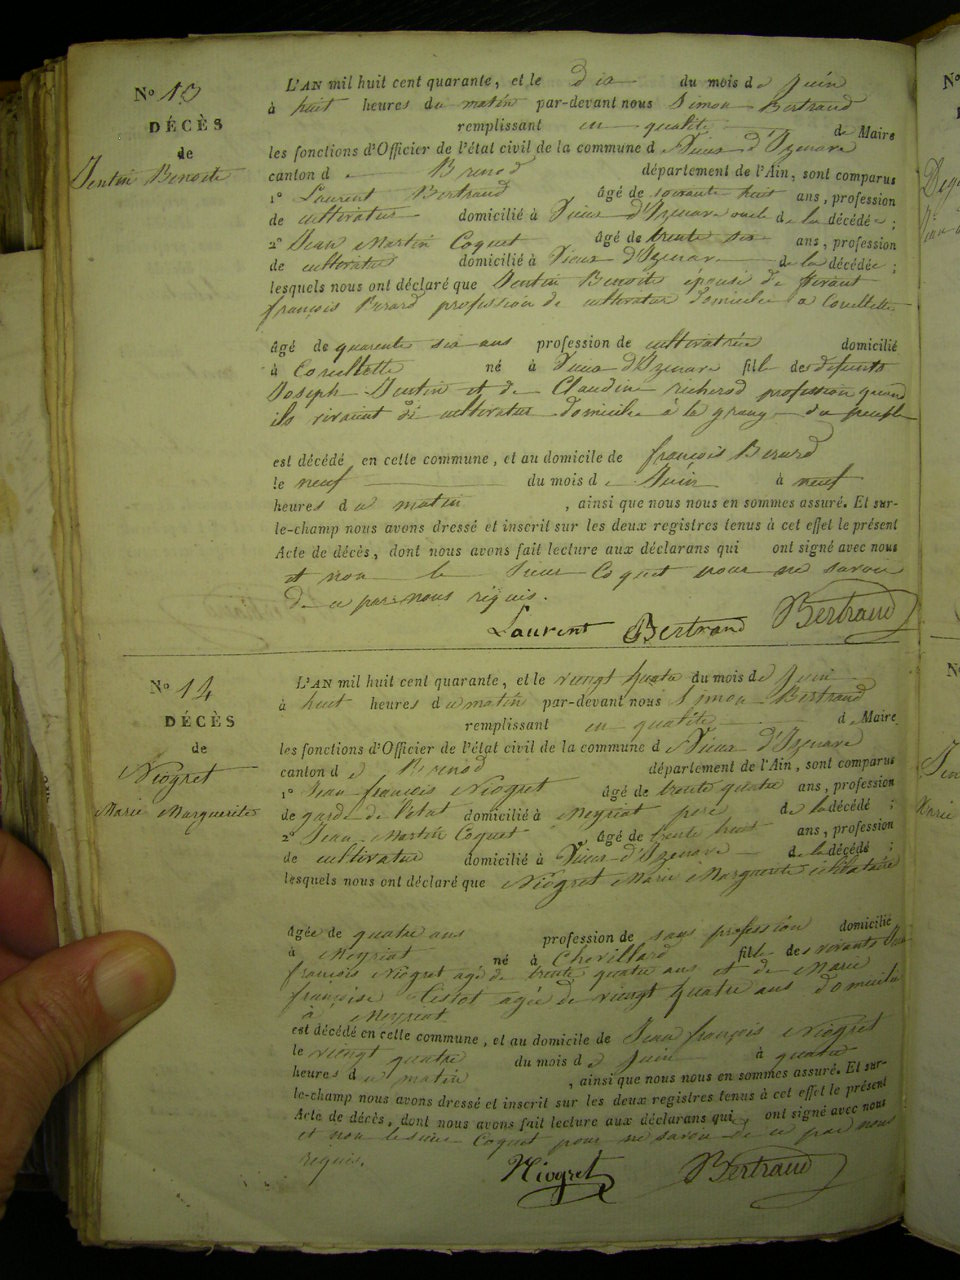 N° 13
DÉCÈS
de
Jentin Benoite
L'AN mil huit cent quarante, et le Dix du mois de Juin
à huit heures du matin par-devant nous Simon Bertrand
remplissant en qualité de Maire
les fonctions d'Officier de l'état civil de la commune de Vieux d'Izenave
canton d Brenod département de l'Ain, sont comparus
1° Laurent Bertrand âgé de soixante huit ans, profession
de cultivateur domicilié à Vieux d'Izenave oncle de la décédée ;
2° Jean Martin Coquet âgé de trente six ans, profession
de cultivateur domicilié à Vieux d'Izenave de la décédée ;
lesquels nous ont déclaré que Jentin Benoite épouse de vivant
françois Berard profession de cultivateur domicilié à Coullette
âgé de quarente six ans profession de cultivatrice domicilié
à Coullette né à Vieux d'Izenave fille des defunts
Joseph Jentin et de Claudine richerod profession quand
ils vivaient de cultivateur domicilié à la grang du peuple
est décédé en cette commune, et au domicile de françois Berard
le neuf du mois d Juin à neuf
heures du matin , ainsi que nous nous en sommes assuré. Et sur-
le-champ nous avons dressé et inscrit sur les deux registres tenus à cet effet le présent
Acte de décès, dont nous avons fait lecture aux déclarans qui ont signé avec nous
et non le sieur Coquet pour ne savoir
De ce par nous réquis.
Laurent Bertrand Bertrand
N° 14
DÉCÈS
de
Niogret
Marie Marguerite
L'AN mil huit cent quarante, et le vingt quatre du mois de Juin
à huit heures du matin par-devant nous Simon Bertrand
remplissant en qualité d Maire
les fonctions d'Officier de l'état civil de la commune de Vieux d'Izenave
canton d Brenod département de l'Ain, sont comparus
1° Jean françois Niogret âgé de trente quatre ans, profession
de garde de l'état domicilié à Meyriat pere de la décédé ;
2° Jean Martin Coquet âgé de trente huit ans, profession
de cultivateur domicilié à Vieux-d'Izenave de la décédé ;
lesquels nous ont déclaré que Niogret Marie Marguerite célibataire
âgée de quatre ans profession de sans profession domicilié
à Meyriat né à Chevillard fille des vivants Jean
françois Niogret agé de trente quatre ans et de Marie
françoise agée de vingt quatre ans domicilié
à Meyriat
est décédé en cette commune, et au domicile de Jean françois Niogret
le vingt quatre du mois de Juin à quatre
heures du matin , ainsi que nous nous en sommes assuré. Et sur-
le-champ nous avons dressé et inscrit sur les deux registres tenus à cet effet le présent
Acte de décès, dont nous avons fait lecture aux déclarans qui ont signé avec nous
et non le sieur Coquet pour ne savoir de ce par nous
requis.
Niogret Bertrand